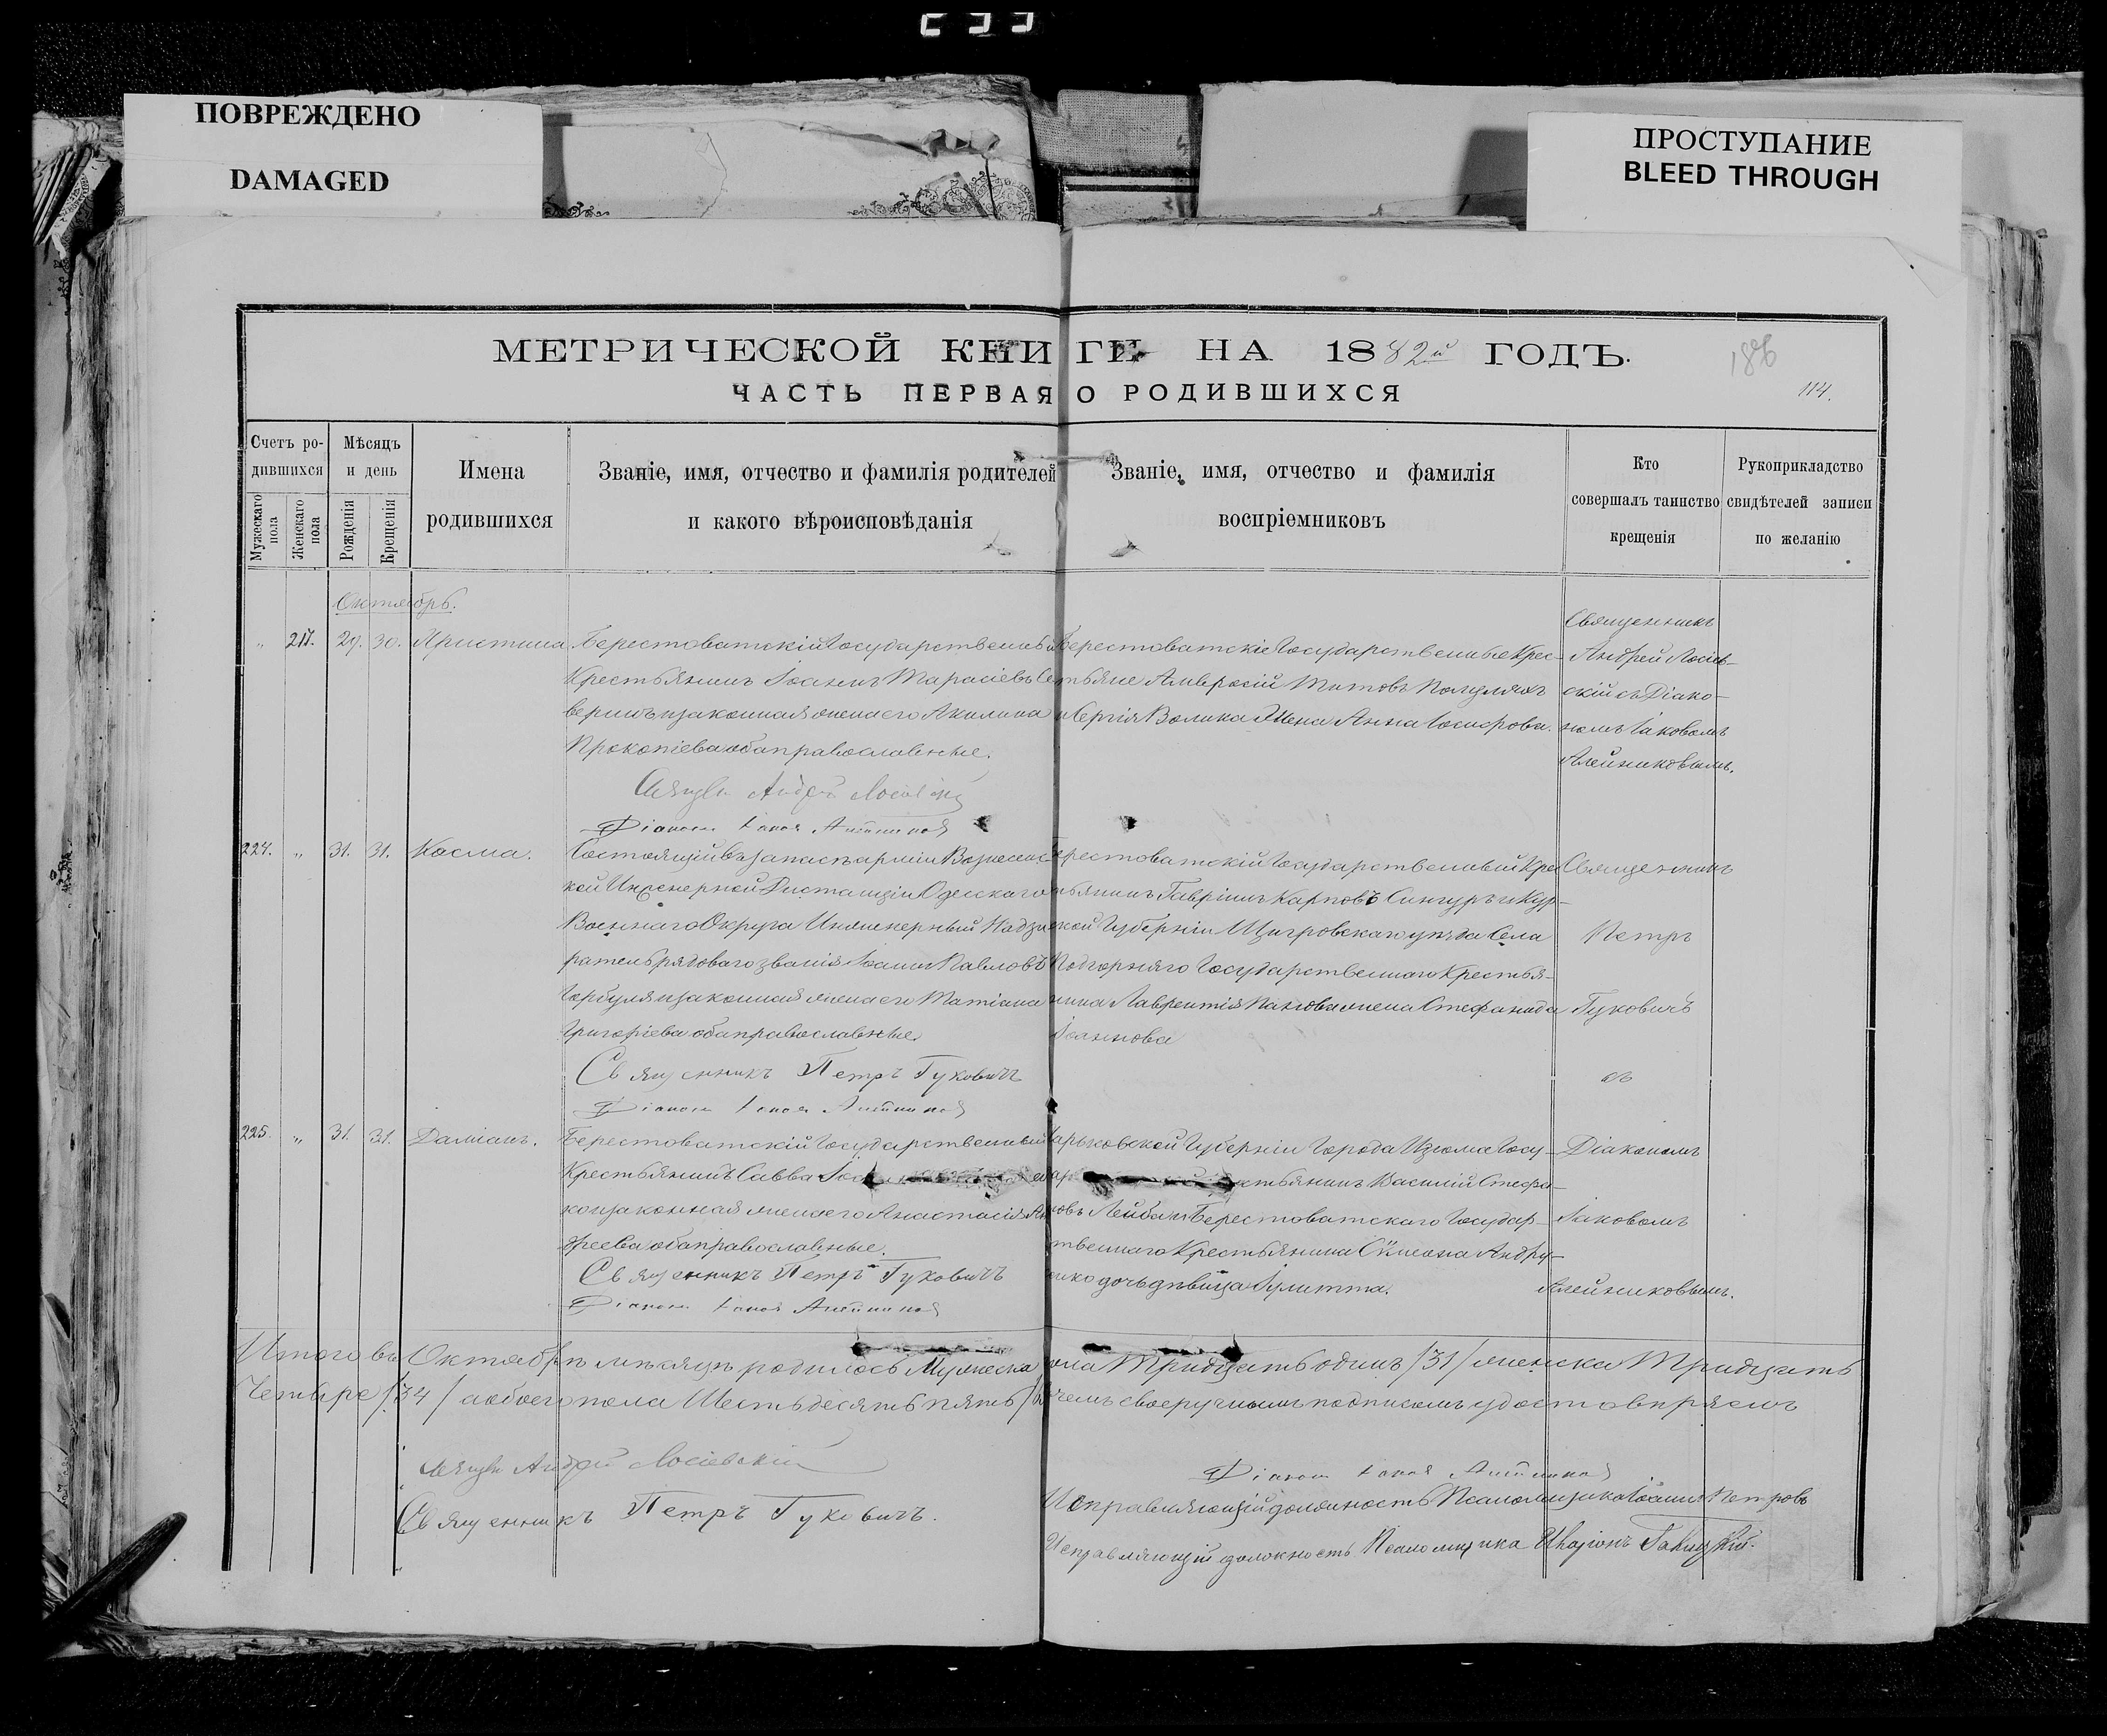 ПОВРЕЖДЕНО
DAMAGED
ПРОСТУПАНИЕ
BLEED THROUGH
МЕТРИЧЕСКОЙ КНИГИ НА 1882й ГОДЪ.
186
ЧАСТЬ ПЕРВАЯ О РОДИВШИХСЯ
114.
Счетъ ро-
дившихся
Мужескаго пола
Женскаго пола
Мѣсяцъ
и день
Рожденія
Крещенія
Имена
родившихся
Званіе, имя, отчество и фамилія родителей
и какого вѣроисповѣданія
Званіе, имя, отчество и фамилія
воспріемниковъ
Кто
совершалъ таинство
крещенія
Рукоприкладство
свидѣтелей записи
по желанію
Октябрь.
„ 217. 29. 30. Христина
Берестоватскій Государственный
Крестьянинъ Іоаннъ Тарасіевъ Се
веринъ и законная жена его Акилина
Прокопіева оба православные.
Андрей Лосіевскій
Діаконъ
Берестоватскіе Государственные Крес-
тьяне Амвросій Титовъ
и Сергія Волика Жена Анна Іосифова.
Священникъ
Андрей Лосіев-
скій съ Діако-
номъ Іаковомъ
Алейниковымъ.
224. „ 31. 31. Косма.
Состоящій въ запасѣ арміи Вознесенс-
кой Инженерной Дистанціи Одесскаго
Военнаго Округа Инженерный Надзи
ратель рядоваго званія Іоаннъ Павловъ
Горбуля и законная жена его Татіана
Григоріева оба православные
Священникъ Петръ Гуковичъ
Діаконъ
Берестоватскій Государственный Кре
стьянинъ Гавріилъ Карповъ Сингуръ и Кур-
ской Губерніи Щигровскаго уѣзда Села
Подгорняго Государственнаго Крестья-
нина Лаврентія жена Стефанида
Іоаннова
Священникъ
Петръ
Гуковичъ
съ
225. „ 31. 31. Даміанъ.
Берестоватскій Государственный
Крестьянинъ Савва
законная жена его Анастасія Ан
дреева оба православные.
Священникъ Петръ Гуковичъ
Діаконъ
Харьковской Губерніи Города Изюма Госу-
дар стьянинъ Василій Стефа-
новъ Лейба и Берестоватскаго Государ-
ственнаго Крестьянина Сѵмеона Андру-
енко дочь дѣвица Іулитта.
Діакономъ
Іаковомъ
Алейниковымъ.
Итого въ Октябрѣ мѣсяцѣ родилось Мужеска пола Тридцать одинъ /31/ женска Тридцать
Четыре /34/ а обоего пола Шестьдесятъ пять чемъ своеручнымъ подписомъ удостовѣряемъ
Андрей Лосіевскій
Священникъ Петръ Гуковичъ.
Діаконъ
Исправляющій должность Псаломщика Іоаннъ Петровъ
Исправляющій должность Псаломщика Иларіонъ